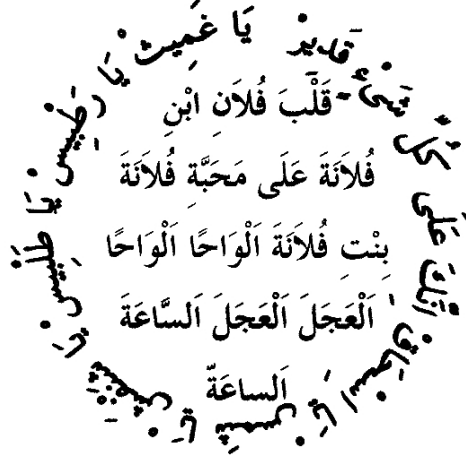 يَا غَمِيث يَا رَطْبِيس يَا طَلْبِيس يَا يَا شَمِس يَا اسحَاق اِنَّكَ عَلَى كُلِّ شَىْءٍ قَدِير
قَلْبَ فُلَانِ ابْنِ
فُلَانَةَ عَلَى مَحَبَّةِ فُلَانَةَ
بِنْتِ فُلَانَةَ اَلْوَاحًا اَلْوَاحًا
اَلْعَجَلَ اَلْعَجَلَ اَلسَّاعَةَ
اَلساعَةّ